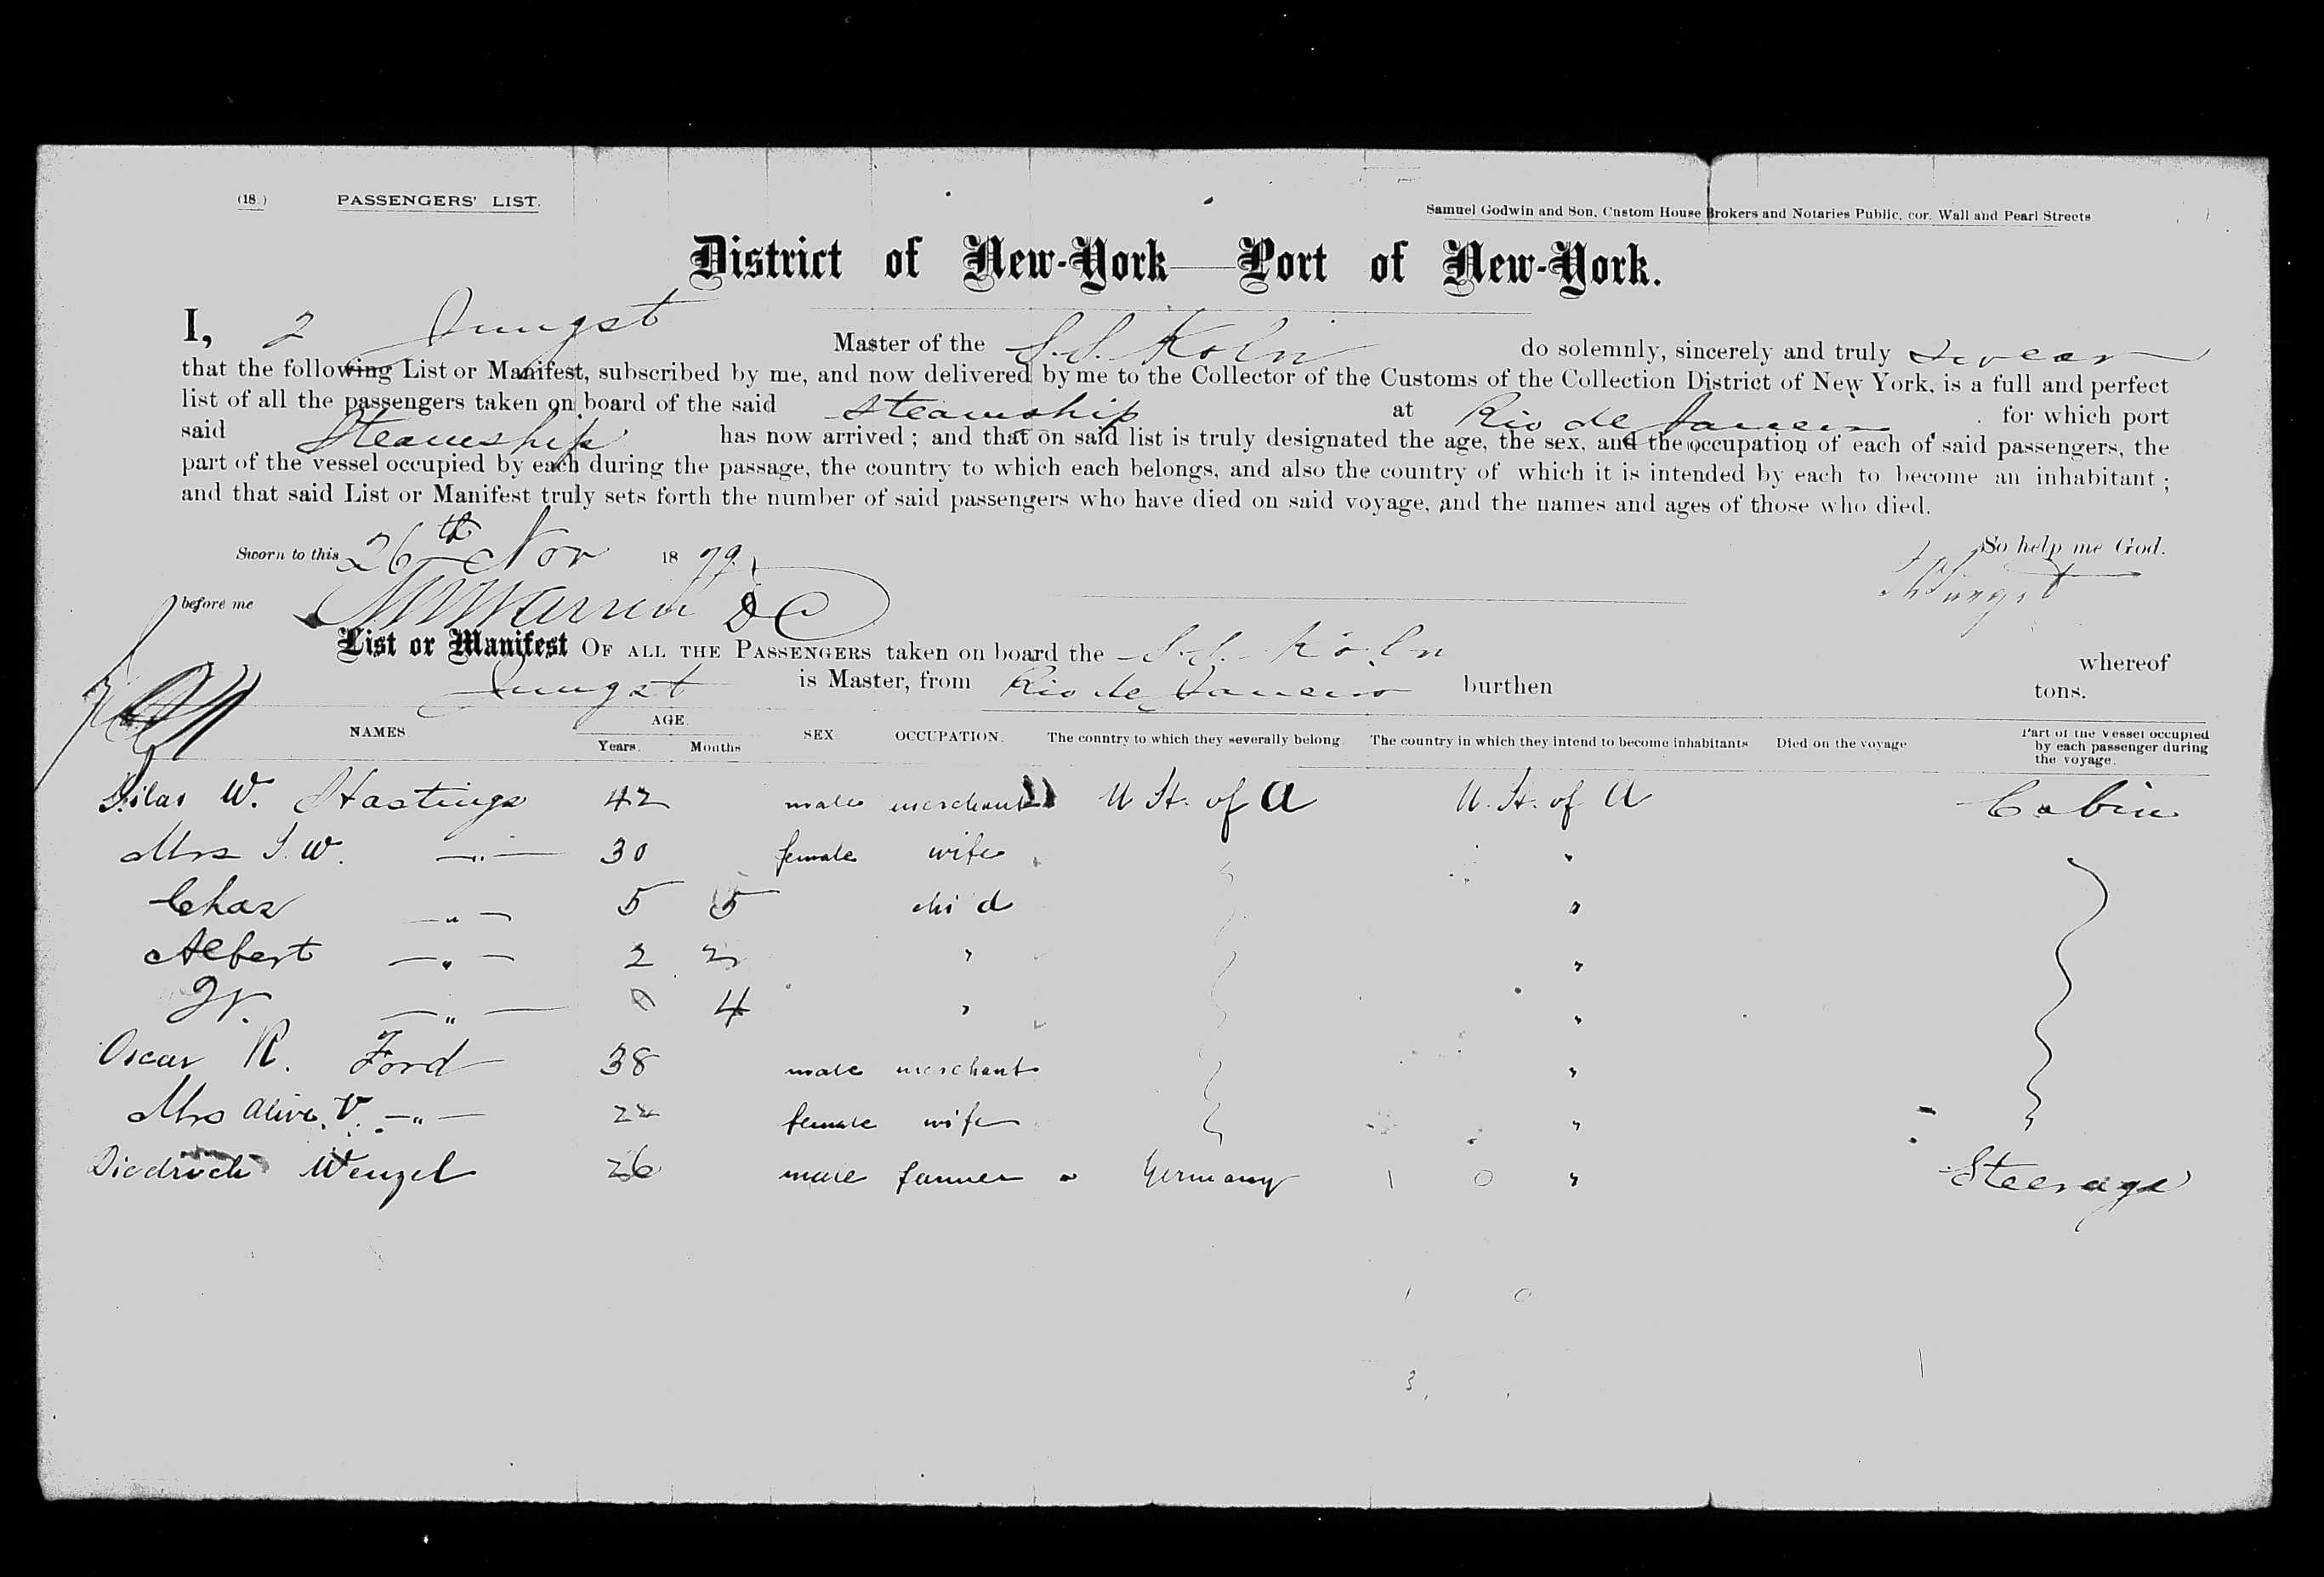 (18 ) PASSENGERS' LIST.
Samuel Godwin and Son, Custom House Brokers and Notaries Public, cor. Wall and Pearl Streets
District of New-York—Port of New-York.
I, Jungst Master of the S.S. Koln do solemnly, sincerely and truly swear
that the following List or Manifest, subscribed by me, and now delivered by me to the Collector of the Customs of the Collection District of New York, is a full and perfect
list of all the passengers taken on board of the said Steamship at Rio de Janeiro for which port
said Steamship has now arrived; and that on said list is truly designated the age, the sex, and the occupation of each of said passengers, the
part of the vessel occupied by each during the passage, the country to which each belongs, and also the country of which it is intended by each to become an inhabitant;
and that said List or Manifest truly sets forth the number of said passengers who have died on said voyage, and the names and ages of those who died.
So help me God.
Sworn to this 26th Nov 1879.
Jungst
before me Warren DC
List or Manifest OF ALL THE PASSENGERS taken on board the S.S. Köln whereof
Jungst is Master, from Rio de Janeiro burthen tons.
NAMES. AGE. Years. Months SEX OCCUPATION. The country to which they severally belong. The country in which they intend to become inhabitants Died on the voyage Part of the vessel occupied by each passenger during the voyage.
Silas W. Hastings 42 male merchant U St. of A U. St. of A Cabin
Mrs S. W. —"— 30 female wife "
Chas —"— 5 5 chi d "
Albert —"— 2 2 " "
W. —"— 0 4 " "
Oscar R. Ford 38 male merchant "
Mrs Alive V. —"— 24 female wife " "
Diedrich Wenzel 26 male farmer Germany " Steerage